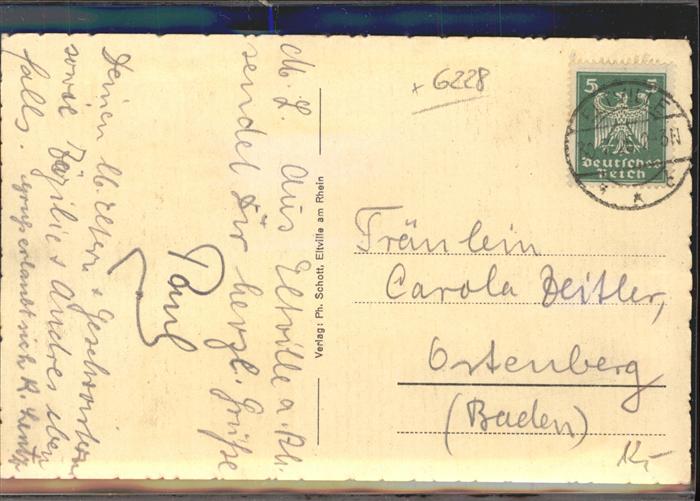 M. L. Aus Eltville a. Rh.
sendet Dir herzl. Grüße
Paul
Deinen l. Eltern & Geschwistern
sowie Bäzilie & Andres eben
falls.
Gruß erlaubt sich K.
Verlag: Ph. Schott, Eltville am Rhein
x 6228
5 5
Deutsches
Reich
ELTVILLE
Fräulein
Carola Zeitler,
Ortenberg
(Baden)
12,-